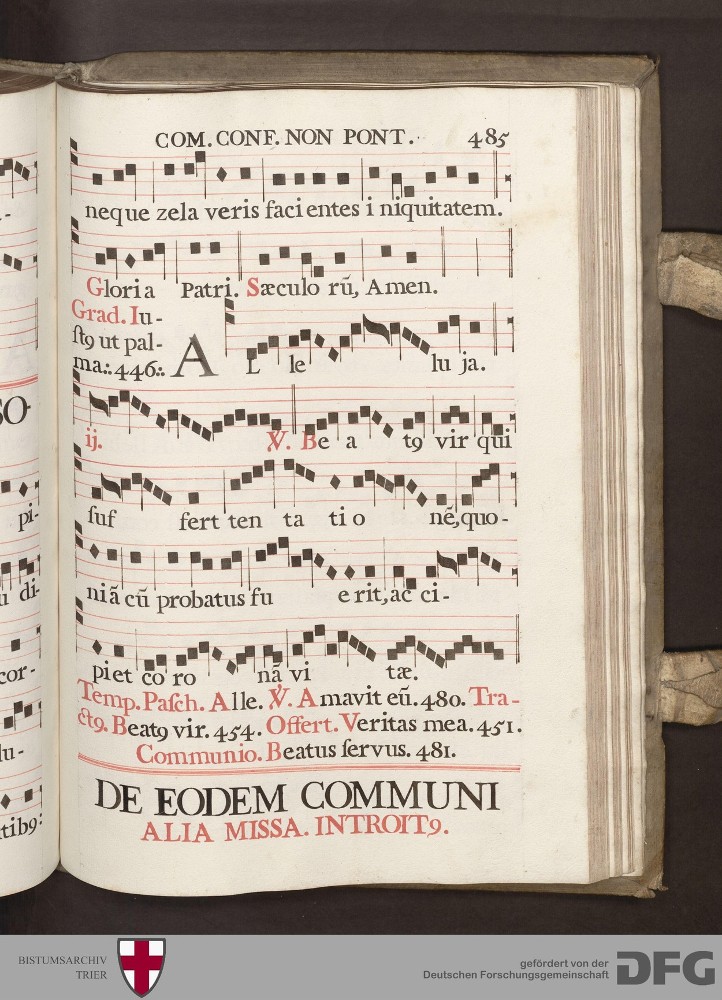 COM. CONF. NON PONT. 485
neque zela veris facientes iniquitatem.
Gloria Patri. Sæculo rũ, Amen.
Grad. Iu-
st9 ut pal-
ma.: 446.:. A L le lu ja.
ij. ℣. Be a t9 vir qui
suf fert ten ta tio nẽ, quo-
niã cũ probatus fu erit, ac ci-
piet co ro nã vi tæ.
Temp. Pasch. Alle. ℣. Amavit eũ. 480. Tra-
ct9. Beat9 vir. 454. Offert. Veritas mea. 451.
Communio. Beatus servus. 481.
DE EODEM COMMUNI
ALIA MISSA. INTROIT9.
SO-
pi-
u di-
cor-
lu-
tib9:
BISTUMSARCHIV
TRIER
gefördert von der
Deutschen Forschungsgemeinschaft
DFG